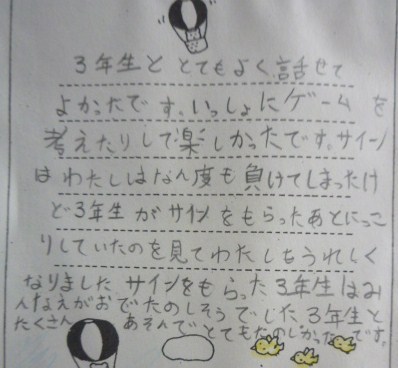 3年生と とてもよく話せて
よかったです。いっしょにゲームを
考えたりして楽しかったです。サイン
はわたしはなん度も負けてしまったけ
ど3年生がサインをもらったあとにっこ
りしていたのを見てわたしもうれしく
なりました サインをもらった3年生はみ
んなえがおでたのしそうでした3年生と
たくさん あそんでとてもたのしかったです。